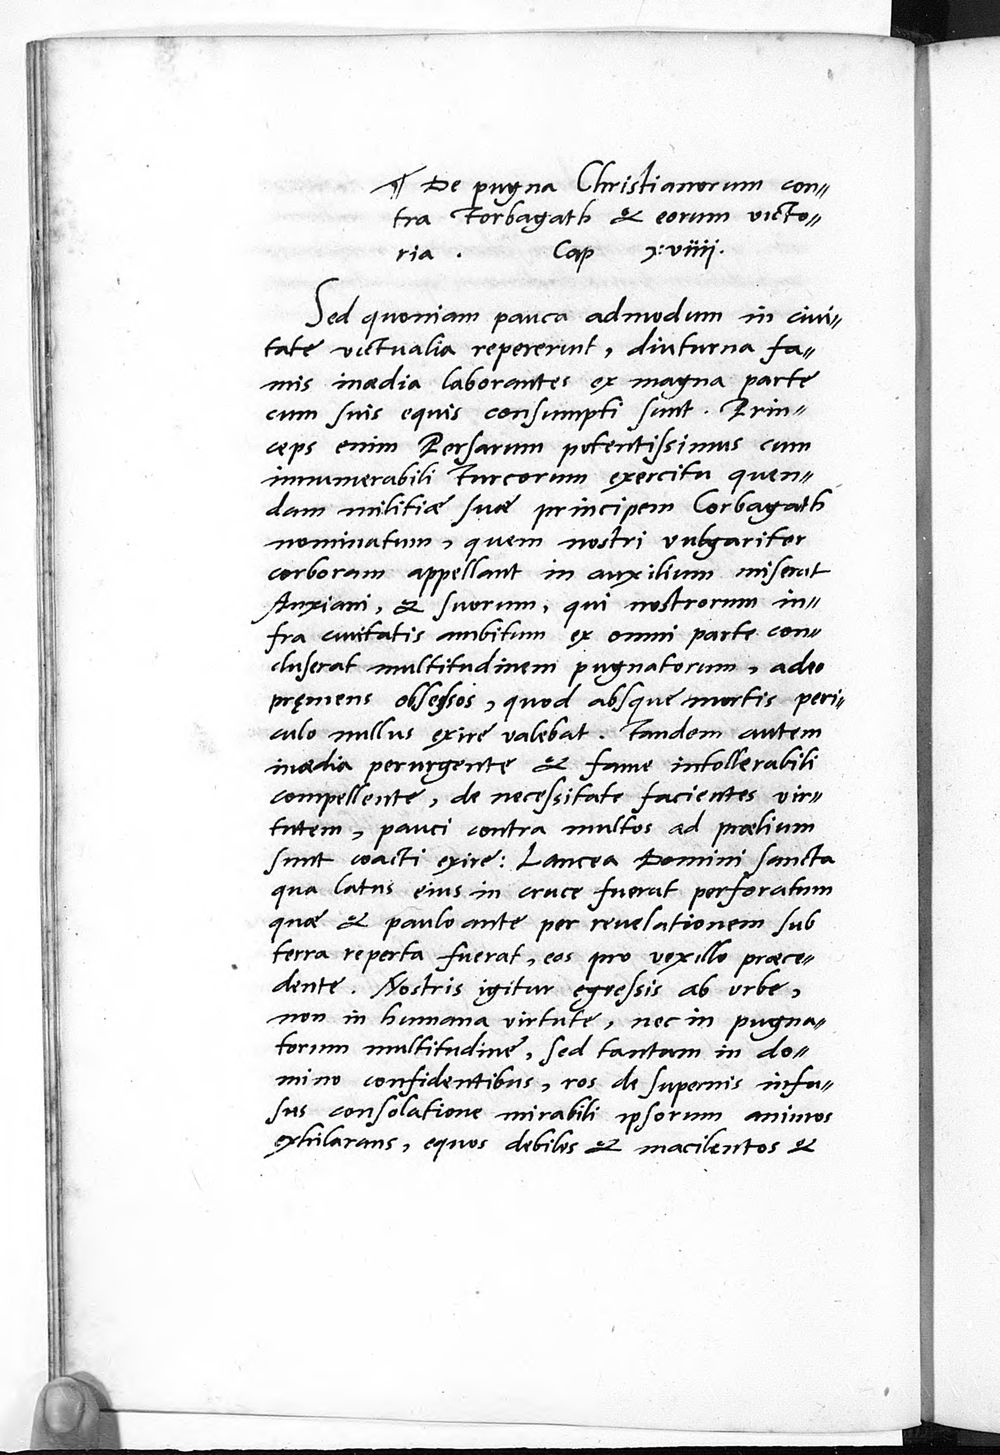 ¶ De pugna Christianorum con〃
tra Torbagath & eorum victo〃
ria . Cap x:viiij.
Sed quoniam pauca admodum in ciui〃
tate victualia repererunt, diuturna fa〃
mis inædia laborantes ex magna parte
cum suis equis consumpti sunt. Prin〃
ceps enim Persarum potentissimus cum
innumerabili Turcorum exercitu quen〃
dam militiæ suæ principem Corbagath
nominatum, quem nostri vulgariter
corboram appellant in auxilium miserat
Auxiani, & suorum, qui nostrorum in〃
fra ciuitatis ambitum ex omni parte con〃
cluserat multitudinem pugnatorum, adeo
pręmens obsessos, quod absque mortis peri〃
culo nullus exire valebat. Tandem autem
inædia perurgente & fame intollerabili
compellente, de necessitate facientes vir〃
tutem, pauci contra multos ad prælium
sunt coacti exire: Lancea Domini sancta
qua latus eius in cruce fuerat perforatum
quæ & paulo ante per reuelationem sub
terra reperta fuerat, eos pro vexillo præce〃
dente. Nostris igitur egressis ab vrbe,
non in humana virtute, nec in pugna〃
torum multitudine, sed tantum in do〃
mino confidentibus, ros de supernis infu〃
sus consolatione mirabili ipsorum animos
exhilarans, equos debiles & macilentos &